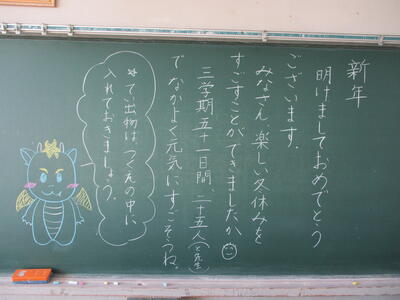 新年
明けましておめでとう
ございます。
みなさん、楽しい冬休みを
すごすことができましたか。
三学期五十一日間、二十五人(と先生)
でなかよく元気にすごそうね。
☆てい出物は、つくえの中に
入れておきましょう。